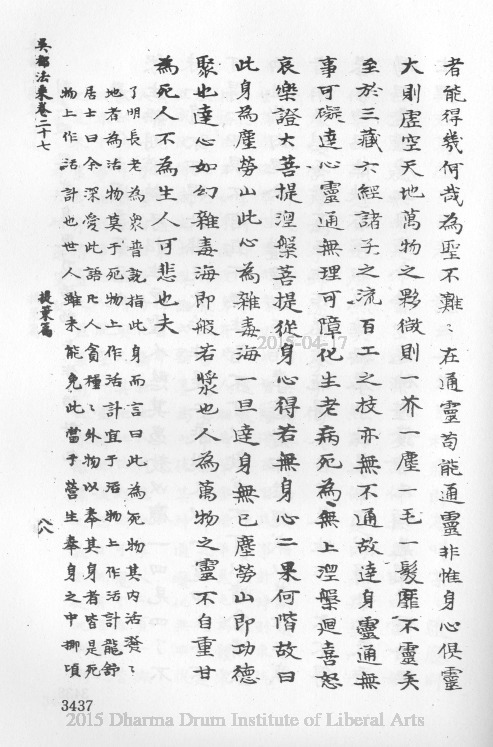 者能得幾何哉為聖不難〻在通靈苟能通靈非惟身心俱靈
大則虛空天地萬物之夥微則一芥一塵一毛一髮靡不靈矣
至於三藏六經諸子之流百工之技亦無不通故達身靈通無
事可礙達心靈通無理可障化生老病死為無上涅槃迴喜怒
哀樂證大菩提涅槃菩提從身心得若無身心二果何階故曰
此身為塵勞山此心為雜毒海一旦達身無已塵勞山即功德
聚也達心如幻雜毒海即般若漿也人為萬物之靈不自重甘
為死人不為生人可悲也夫
了明長老為眾普說指此身而言曰此為死物其內活潑〻
地者為活物莫于死物上作活計宜于活物上作活計龍舒
居士曰余深愛此語凡人貪種〻外物以奉其身者皆是死
物上作活計也世人雖未能免此當于營生奉身之中挪頃
吳都法乘卷二十七
提策篇
八八
3437
2015-04-17
2015 Dharma Drum Institute of Liberal Arts